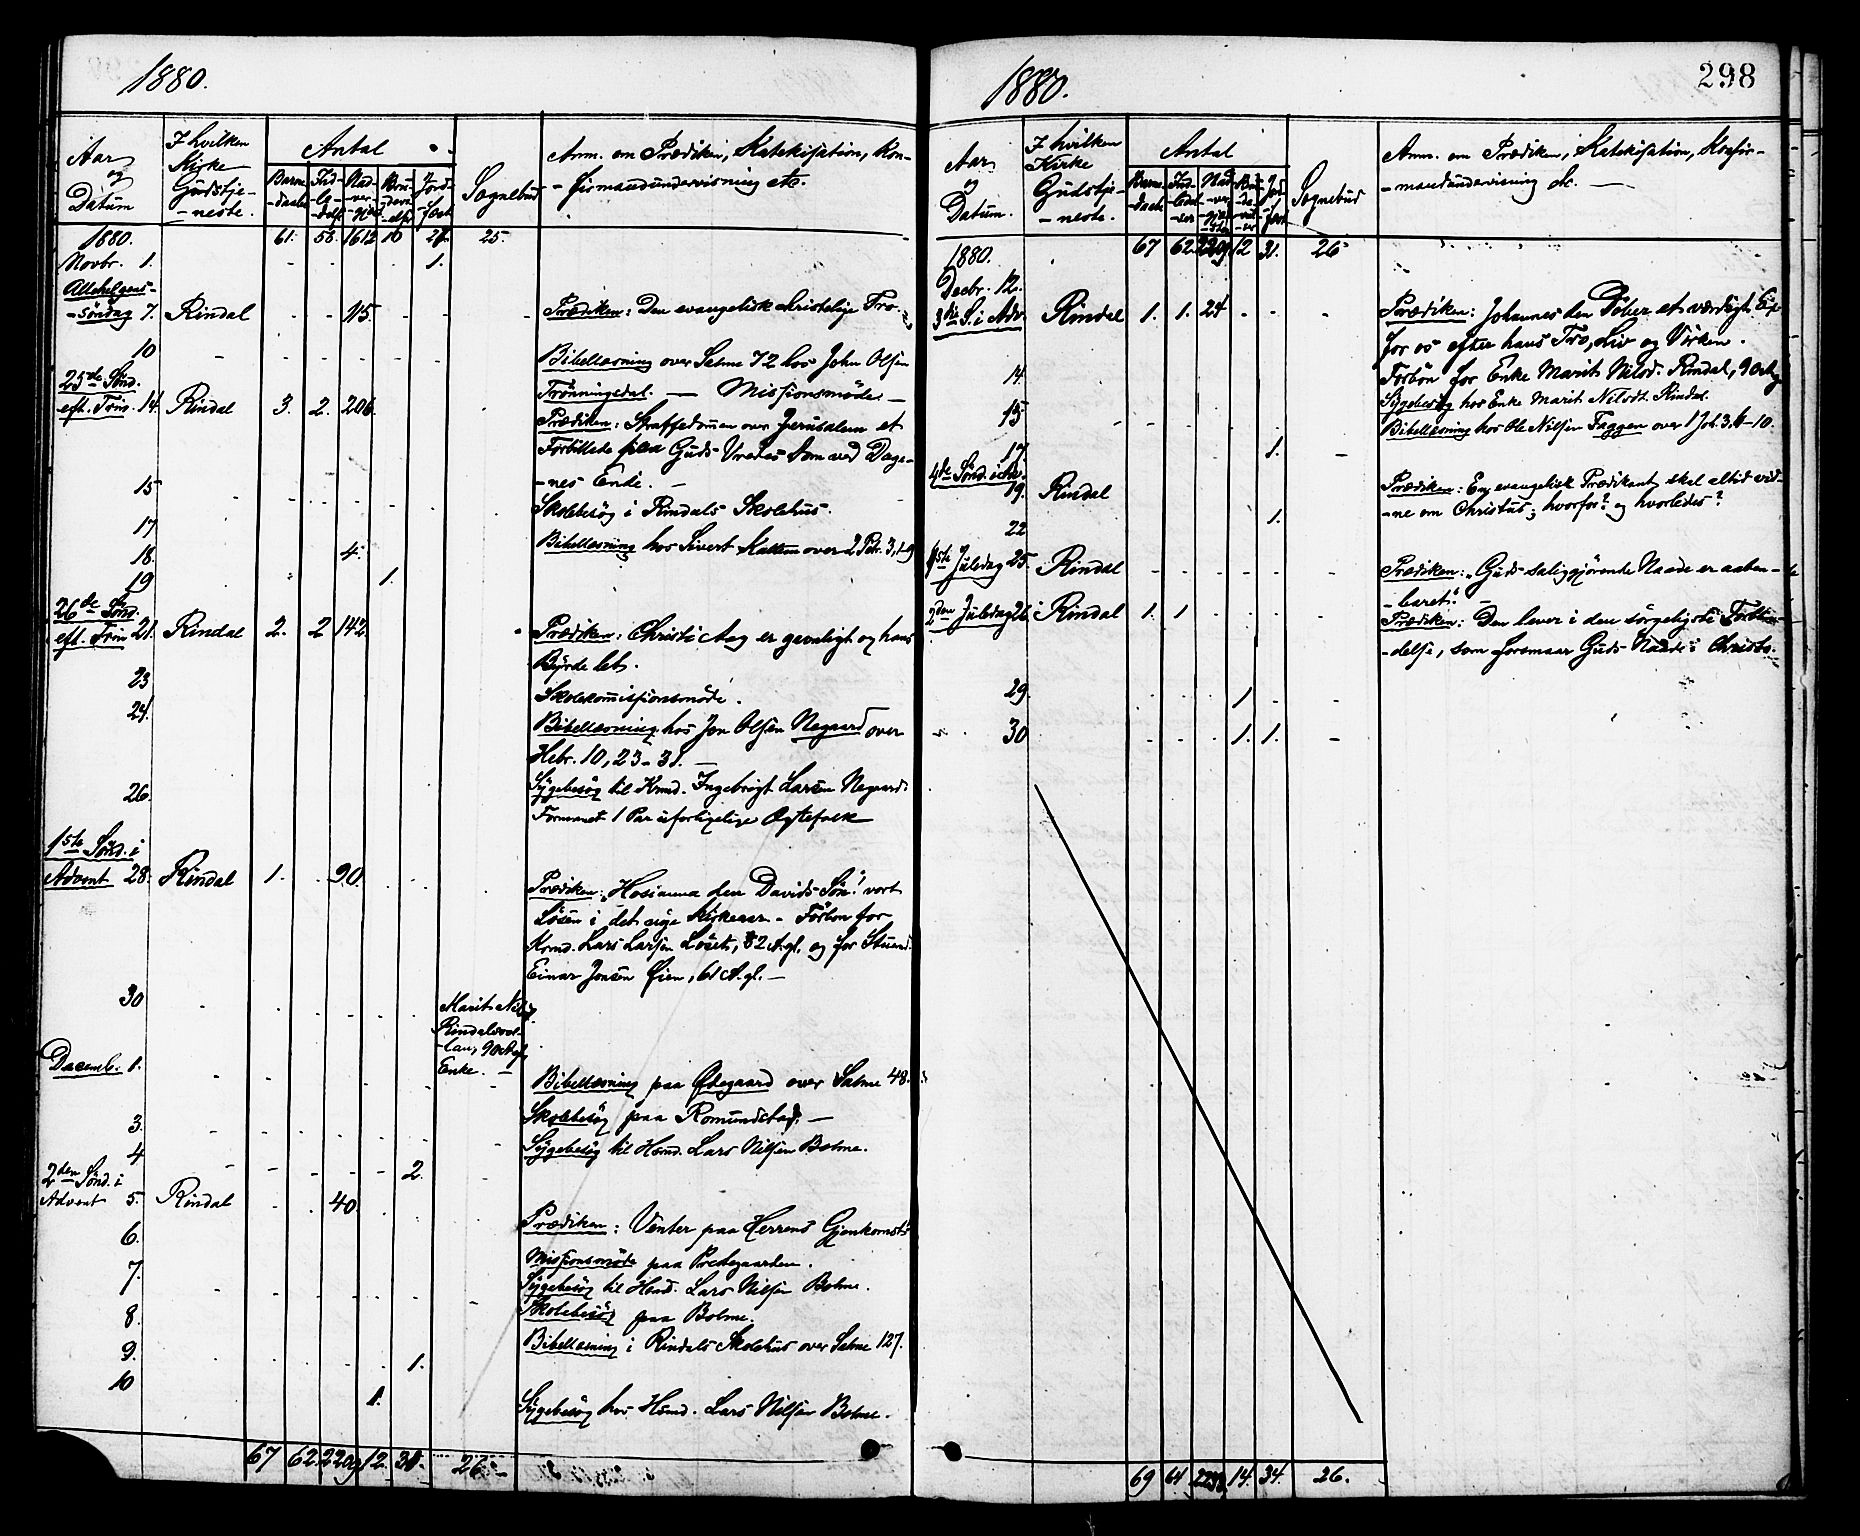 1880.
Aar og Datum
I hvilken Kirke Gudstje-neste.
Antal
Sognebud
Anm. om Prædiken, Katekisation, Kon-
-firmandundervisning etc.
1880. 61. 58. 1612 10 27. 25.
Novbr. 1. 1.
Allehelgens-
-söndag 7. Rindal 115. Prædiken: Den evangelisk christelige Tro.
10 Bibellæsning over Salme 72 hos John Olsen
25de Sönd. Trönningedal. — Missionsmöde —
eft. Trin. 14. Rindal 3. 2. 206. Prædiken: Straffedommen over Jerusalem et
Forbillede paa Guds Vredes Dom ved Dage-
-nes Ende. —
15 Skolebesög i Rindals Skolehus.
17 Bibellæsning hos Sivert over 2 Petr. 3, 1-9
18. 4.
19 1.
26de Sönd.
eft. Trin 21. Rindal 2. 2 142. Prædiken: Christi Aag er gavnligt og hans
Byrde let.
23 Skolekommissionsmöde.
24. Bibellæsning hos Jon Olsen Negaard over
Hebr. 10, 23-31. —
26. Sygebesög til Kmd. Ingebrigt Larsen Negaard.
Formanet 1 Par uforligelige Ægtefolk
1ste Sönd. i
Advent 28. Rindal 1. 90. Prædiken: "Hosianna den Davids Sön!" vort
Lösen i det nye Kirkeaar. - Forbön for
Kmd. Lars Larsen Löset, 82 A. gl. og for
Einar Jonsen Øien, 61 A. gl. —
30 Marit Nilsd.
Rindalsvol-
-lan, 90 A. gl.
Enke. —
Decemb. 1. Bibellæsning paa Ødegaard over Salme 48.
3. Skolebesög paa Romundstad. —
4 2. Sygebesög til Hsmd. Lars Nilsen Bolme.
2den Sönd. i
Advent 5. Rindal 40. Prædiken: Venter paa Herrens Gjenkomst!
6. Missionsmöde paa Prestegaarden.
7. Sygebesög til Hsmd. Lars Nilsen Bolme.
8. Skolebesög paa Bolme.
9. 1. Bibellæsning i Rindals Skolehus over Salme 127.
10 1. Sygebesög hos Hsmd. Lars Nilsen Bolme.
67 62. 2209 12. 31. 26.
1880.
298
Aar og Datum.
I hvilken Kirke Gudstje-neste.
Antal
Sognebud
Anm. om Prædiken, Katekisation, Konfir-
-mandundervisning etc. —
1880. 67 62. 2209. 12 31. 26
Decbr. 12.
3die S. i Adv. Rindal 1. 1. 24 Prædiken: Johannes den Döber et værdigt Exp.
for os efter hans Tro, Liv og Virken.
14. Forbön for Enke Marit Nilsd. Rindal, 90 A. g.
Sygebesög hos Enke Marit Nilsdt. Rindal.
15 Bibellæsning hos Ole Nilsen Faggen over 1 Joh. 3, 4-10.
17. 1.
4de Sönd. i Adv.
19. Rindal Prædiken: En evangelisk Prædikant skal altid vid-
-ne om Christus; hvorfor? og hvorledes?
22 1.
1ste Juledag 25. Rindal Prædiken: "Guds saliggjörende Naade er aaben-
-baret."
2den Juledag 26. Rindal 1. 1 Prædiken: Den lever i den sörgeligste
-delse, som forsmaar Guds Naade i Christo.
29. 1
30 1. 1.
69 64 2233. 14. 34. 26.